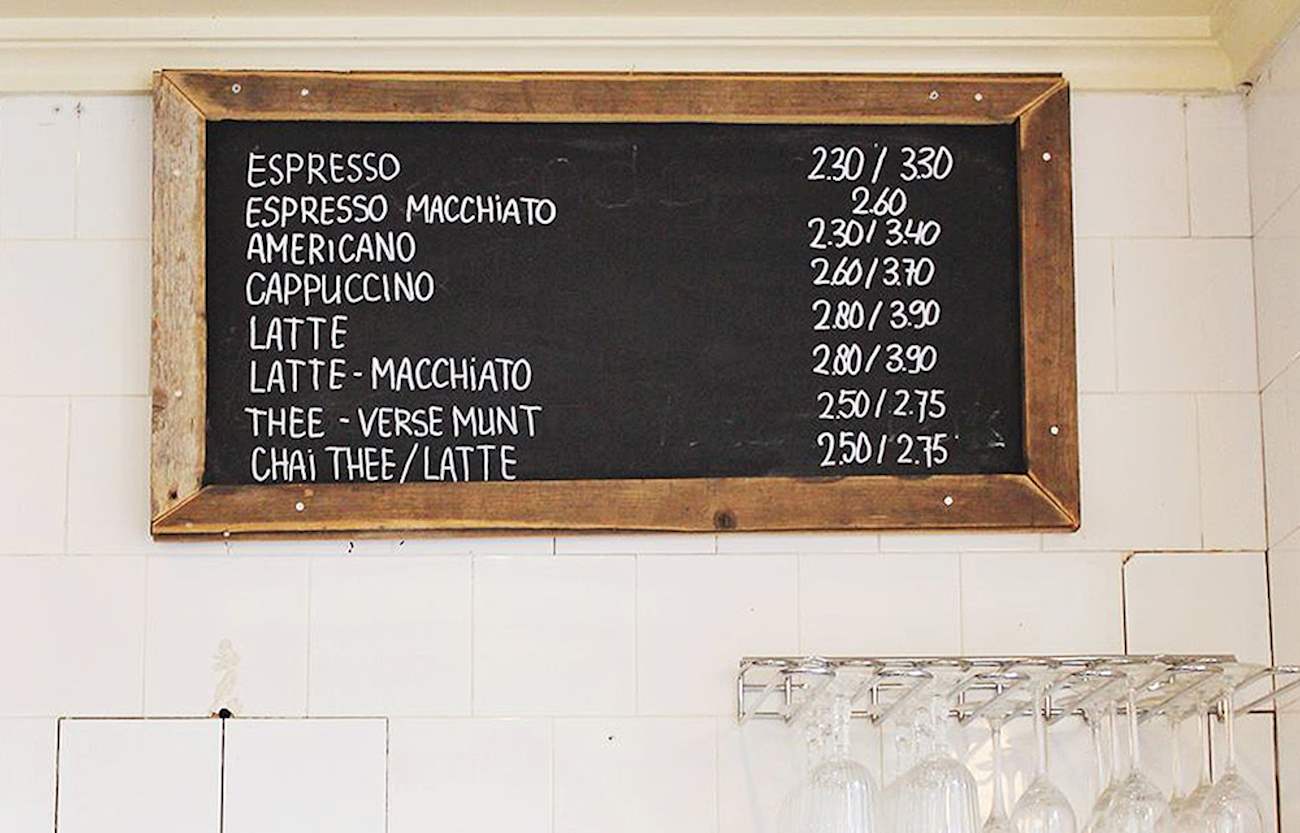 ESPRESSO 2.30 / 3.30
ESPRESSO MACCHiATO 2.60
AMERICANO 2.30 / 3.40
CAPPUCCINO 2.60 / 3.70
LATTE 2.80 / 3.90
LATTE - MACCHiATO 2.80 / 3.90
THEE - VERSE MUNT 2.50 / 2.75
CHAi THEE / LATTE 2.50 / 2.75